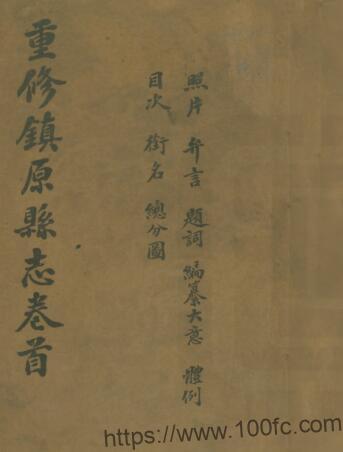 照片 弁言 題詞 編纂大意 體例
目次 銜名 總分圖
重修鎮原縣志卷首
https://www.100fc.com